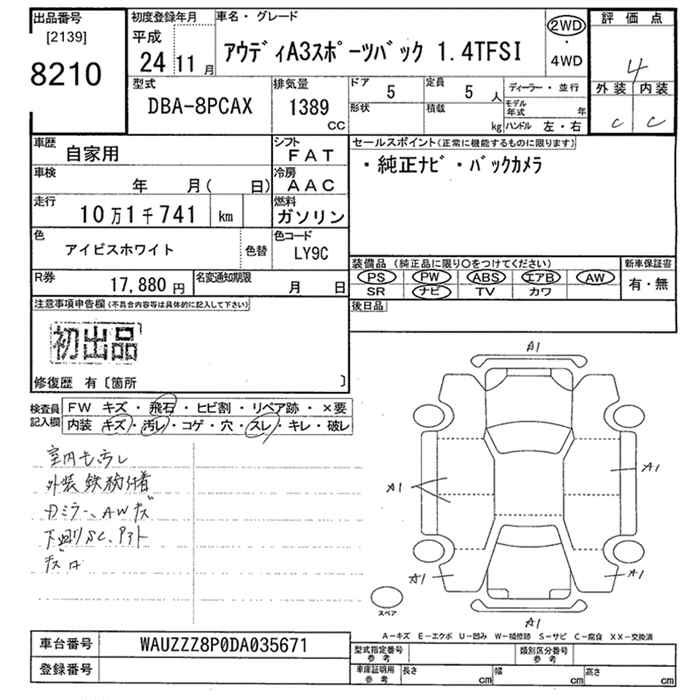 出品番号 [2139] 8210
初度登録年月 平成 24 11 月
車名・グレード アウディA3スポーツバック 1.4TFSI
2WD ・ 4WD
評価点 4
外装 内装
C C
型式 DBA-8PCAX
排気量 1389 CC
ドア 5
定員 5 人
形状
積載 kg
ディーラー・並行
モデル年式 年
ハンドル 左・右
車歴 自家用
シフト FAT
車検 年 月( 日)
冷房 AAC
走行 10万1千741 km
燃料 ガソリン
色 アイビスホワイト 色替
色コード LY9C
R券 17,880 円
名変通知期限 月 日
セールスポイント(正常に機能するものに限ります)
・純正ナビ・バックカメラ
装備品 (純正品に限り○をつけてください)
PS PW ABS エアB AW
SR ナビ TV カワ
新車保証書 有・無
後日品
注意事項申告欄(不具合内容等は具体的に記入して下さい)
初出品
修復歴 有〔箇所 〕
検査員記入欄
FW キズ・飛石・ヒビ割・リペア跡・×要
内装 キズ・汚レ・コゲ・穴・スレ・キレ・破レ
外装鉄粉付着
A1
A1
A1
A1
A1
A1
スペア
A-キズ E-エクボ U-凹み W-補修跡 S-サビ C-腐食 XX-交換済
車台番号 WAUZZZ8P0DA035671
登録番号
型式指定番号 参考
類別区分番号 参考
車庫証明用 参考
長さ cm 幅 cm 高さ cm